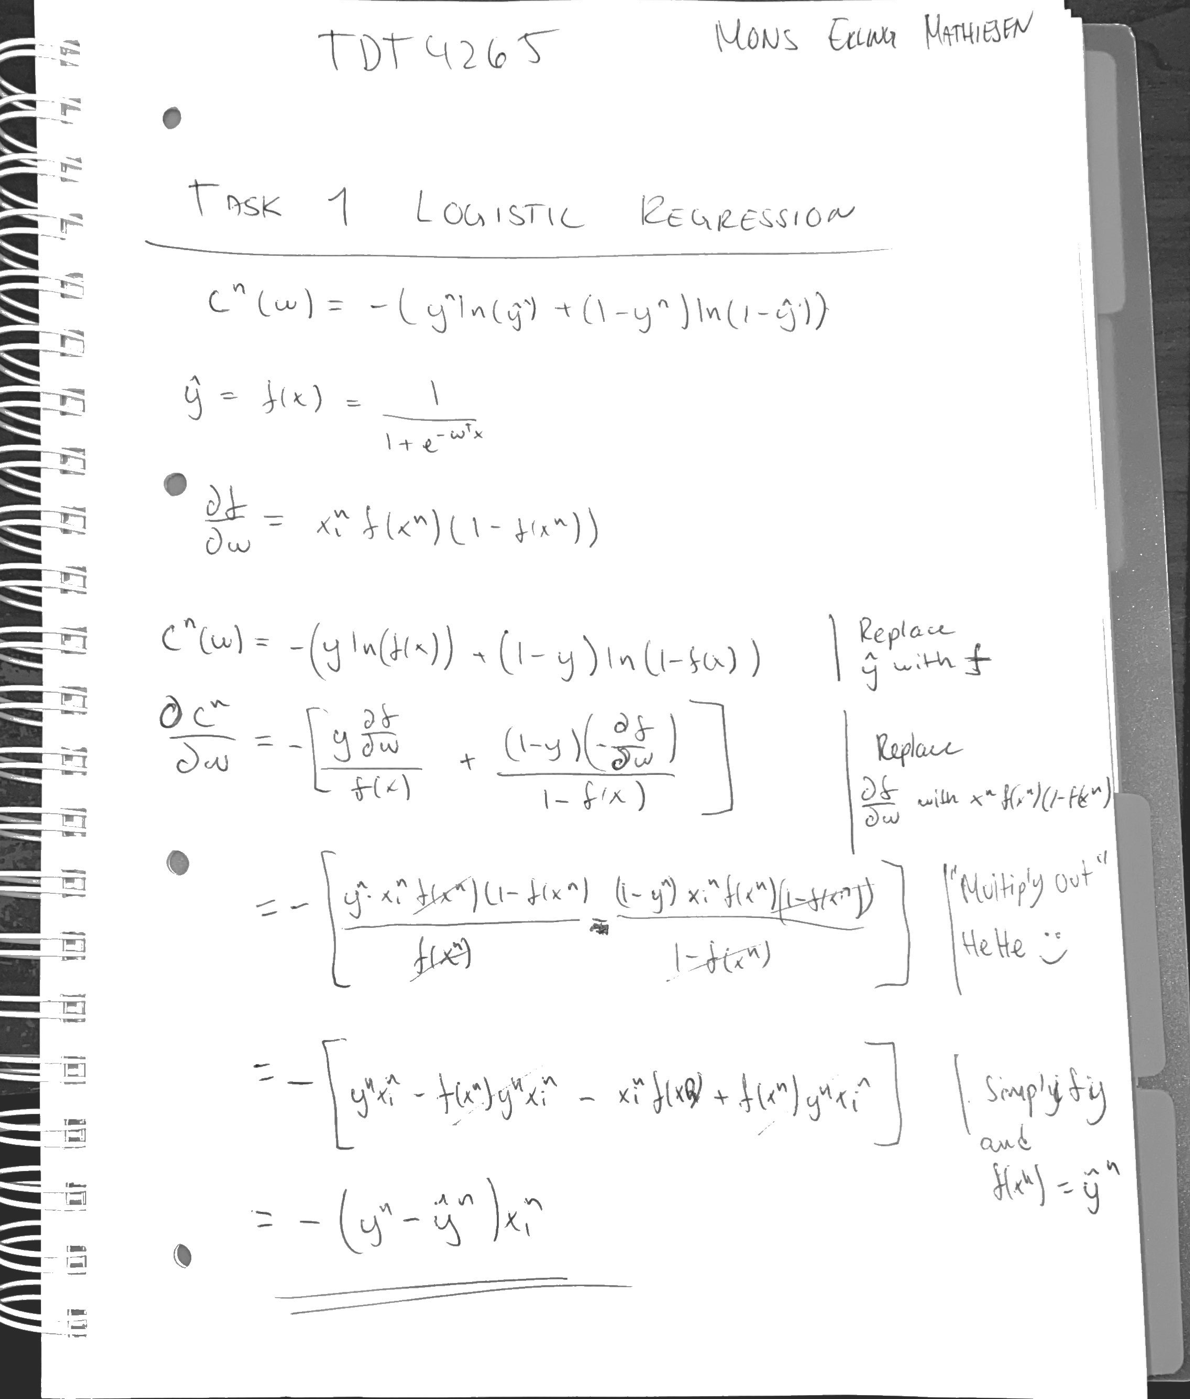 TDT4265
MONS ERLING MATHIESEN
TASK 1 LOGISTIC REGRESSION
Cⁿ(w) = -(yⁿ ln(ŷⁿ) + (1-yⁿ) ln(1-ŷⁿ))
ŷ = f(x) = 1 / (1 + e^(-wᵀx))
∂f/∂w = xᵢⁿ f(xⁿ)(1 - f(xⁿ))
Cⁿ(w) = -(y ln(f(x)) + (1-y) ln(1-f(x))) | Replace ŷ with f
∂Cⁿ/∂w = -[ y ∂f/∂w / f(x) + (1-y)(-∂f/∂w) / (1-f(x)) ] | Replace ∂f/∂w with xⁿ f(xⁿ)(1-f(xⁿ))
= -[ yⁿ · xᵢⁿ f(xⁿ)(1-f(xⁿ) / f(xⁿ) - (1-yⁿ) xᵢⁿ f(xⁿ)(1-f(xⁿ)) / (1-f(xⁿ)) ] | "Multiply out" HeHe :)
= -[ yⁿxᵢⁿ - f(xⁿ)yⁿxᵢⁿ - xᵢⁿ f(xⁿ) + f(xⁿ)yⁿxᵢⁿ ] | Simplyfiy and f(xⁿ) = ŷⁿ
= -(yⁿ - ŷⁿ)xᵢⁿ